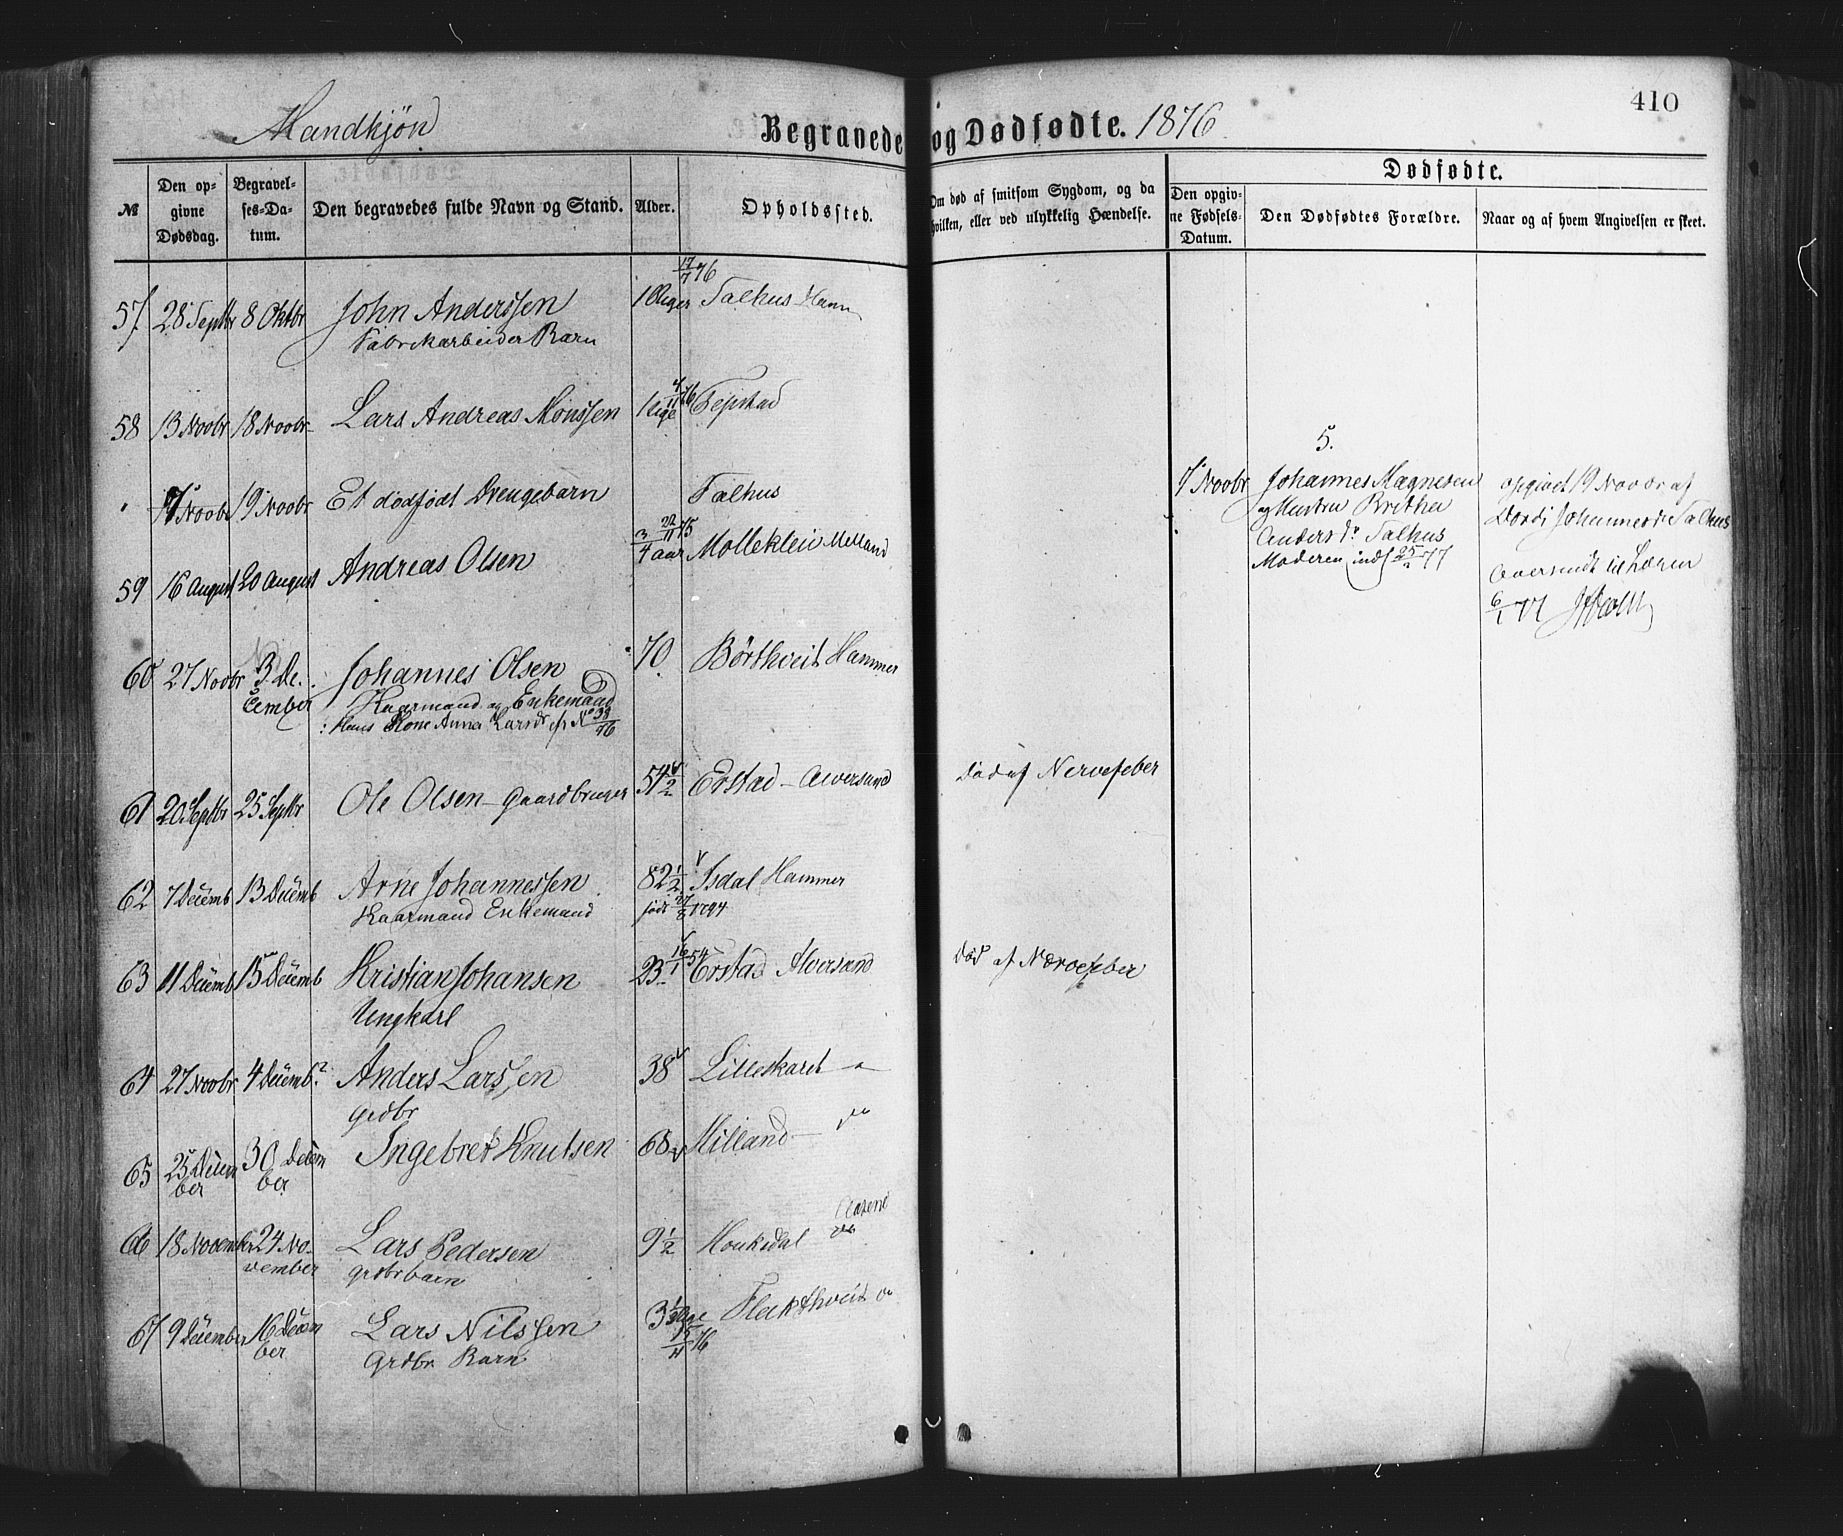 410
Mandkjøn
Begravede og Dødfødte. 1876
№
Den opgivne Dødsdag.
Begravelses-Datum.
Den begravedes fulde Navn og Stand.
Alder.
Opholdssted.
Om død af smitsom Sygdom, og da hvilken, eller ved ulykkelig Hændelse.
Dødfødte.
Den opgivne Fødsels-Datum.
Den Dødfødtes Forældre.
Naar og af hvem Angivelsen er skeet.
57 28 Septbr 8 Oktbr John Anderssen 17/7 76 Talhus Ham
Fabrikarbeider Barn
58 13 Novbr 18 Novbr Lars Andreas Monssen 1 Uge 4/11 76
5.
7 Novbr 19 Novbr Et dødfødt Drengebarn Talhus 7 Novbr Johannes Magnesen opgivet 19 Novbr af
og Hustru Britha Johannesd. Talhus
Andersd. Talhus
Moderen indf 25/2 77 Oversendt til Lægen
6/1 77
59 16 August 20 August Andreas Olsen 3/4 aar 22/11 75 Melland
60 27 Novbr 3 December Johannes Olsen 70 Børthveit Hammer
Kaarmand og Enkemand
: Hans Kone Anna Larsdr cfr No 39/76
61 20 Septbr 25 Septbr Ole Olsen - Gaardbruger 54 1/2 Erstad - Alversund Død af Nervefeber
62 7 Decemb 13 Decemb Arne Johannessen 82 1/2 Isdal Hammer
Kaarmand Enkemand født 27/8 1794
63 11 Decemb 15 Decemb Kristian Johansen 23 16/1 54 Erstad Alversund Død af Nærvefeber
Ungkarl
64 27 Novbr 4 Decemb? Anders Larssen 38 Lilleskaret
Grdbr
65 25 December 30 December Ingebret Knutsen 68 Milland
66 18 November 24 November Lars Pedersen 9 1/2 Houkedal
Grdbr barn
67 9 December 16 December Lars Nilssen 3 1/2 Uge Flekthveit do
Grdbr Barn 15/11 76